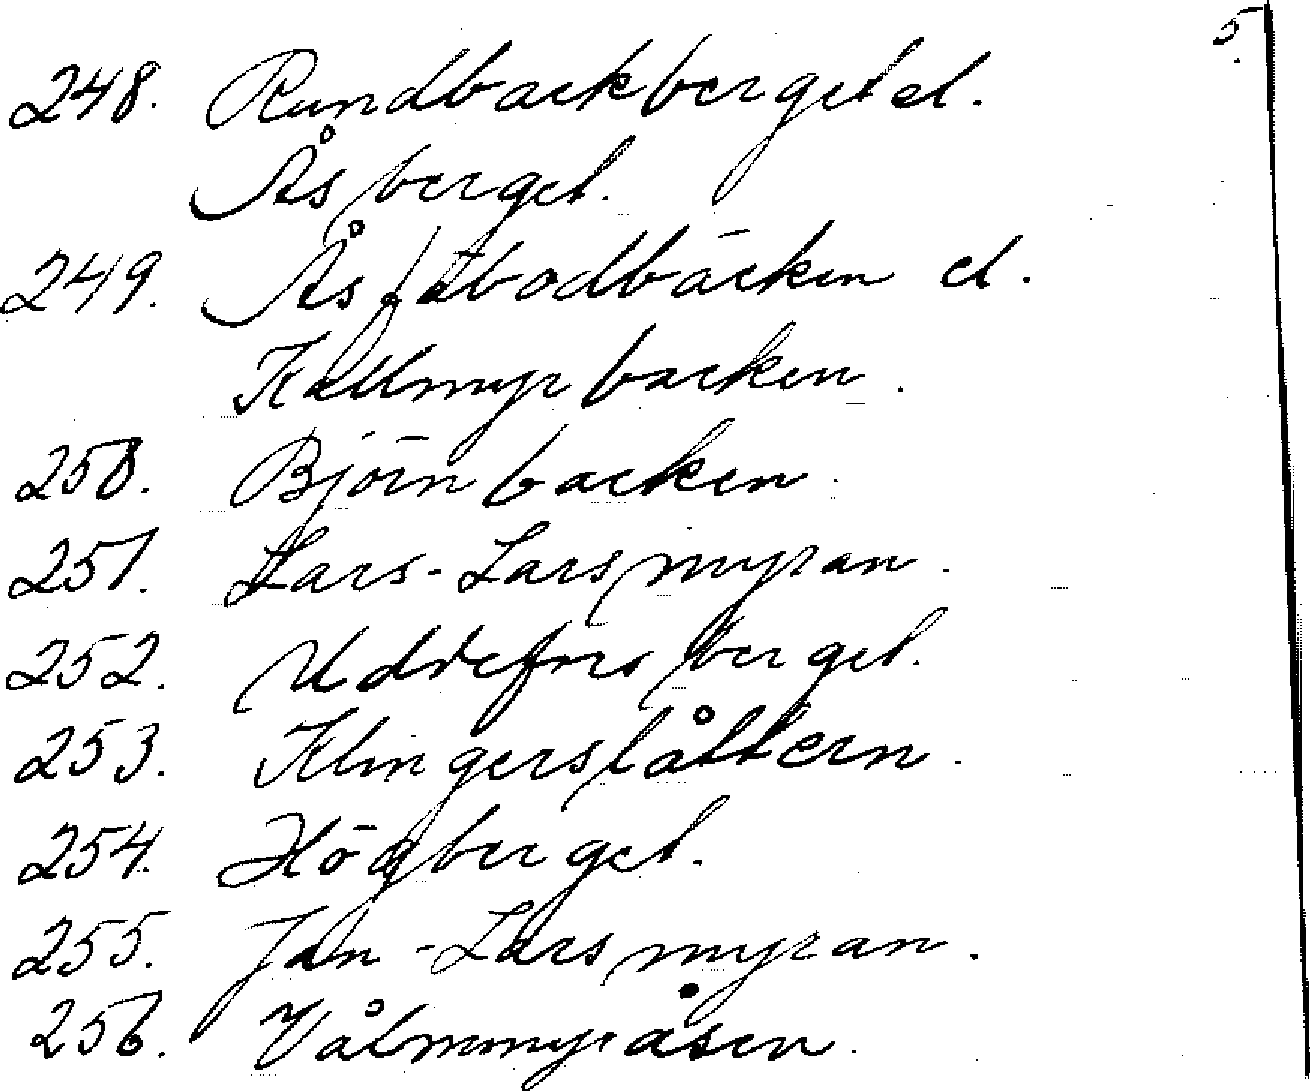 5.
248. Rundbackberget el.
Åsberget.
249. Åsfäbodbäcken el.
Kallmyrbacken.
250. Björnbacken.
251. Lars-Larsmyran.
252. berget.
253. Klingerslåttern.
254. Högberget.
255. Jan-Larsmyran.
256. Vålmmyråsen.